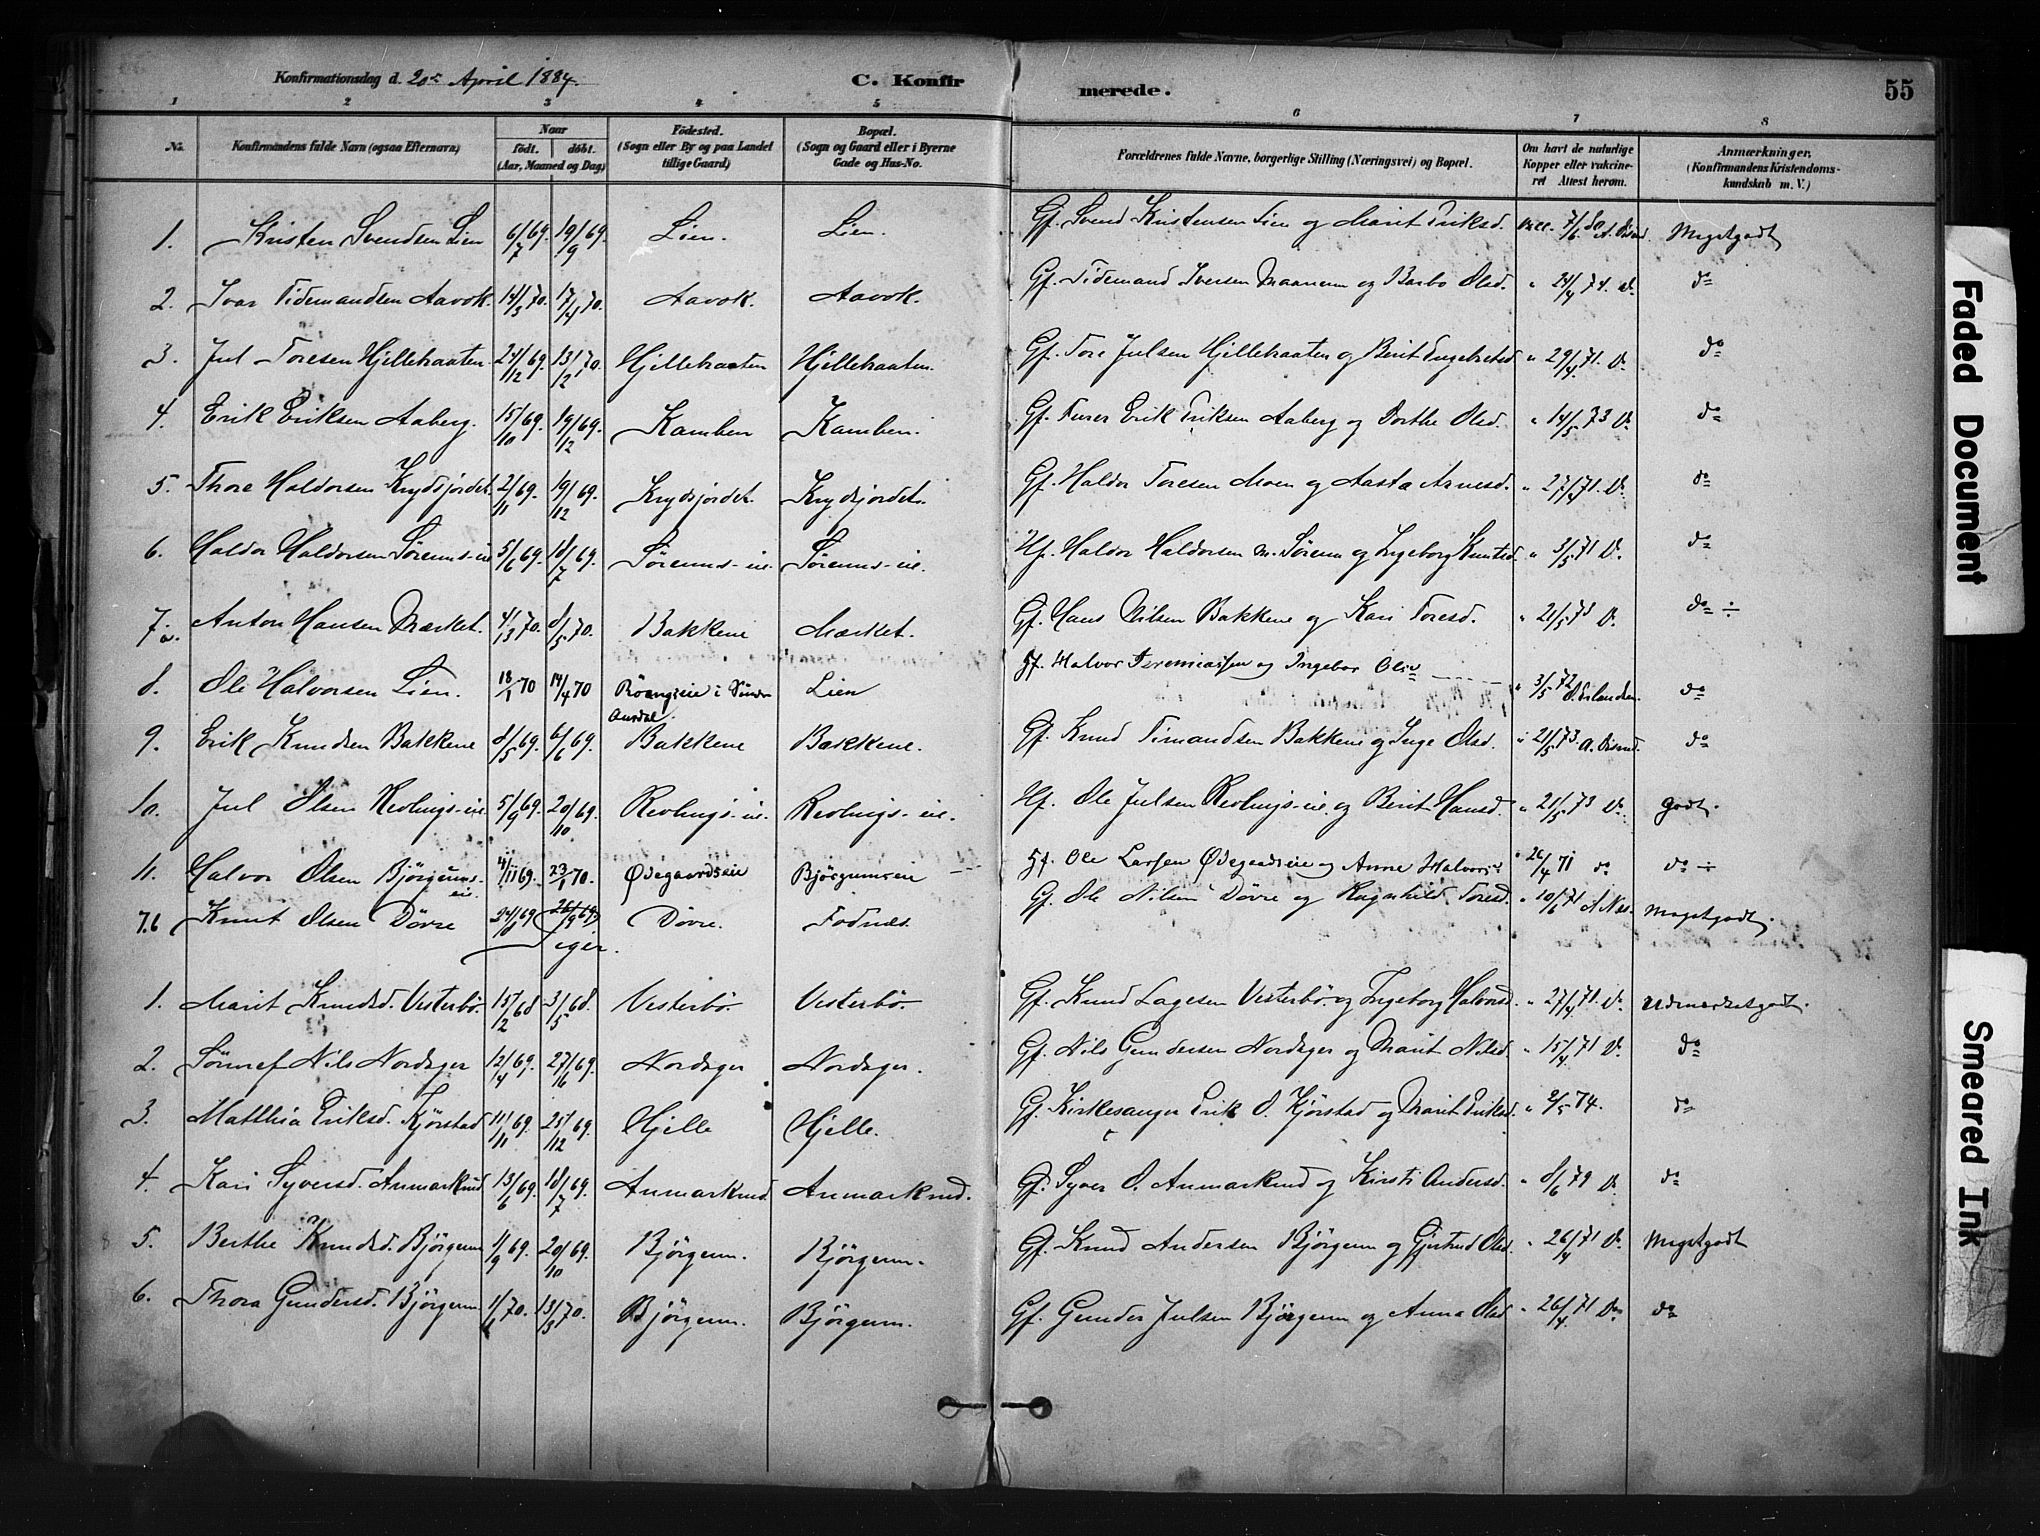 Konfirmationsdag d. 20de April 1884.
C. Konfirmerede.
55
1 2 3 4 5 6 7 8
No. Konfirmandens fulde Navn (ogsaa Efternavn) Naar født. døbt. (Aar, Maaned og Dag) Fødested. (Sogn eller By og paa Landet tillige Gaard) Bopæl. (Sogn og Gaard eller i Byerne Gade og Hus-No. Forældrenes fulde Navne, borgerlige Stilling (Næringsvei) og Bopæl. Om havt de naturlige Kopper eller vakcineret Attest herom. Anmærkninger, (Konfirmandens Kristendomskundskab m. V.)
1. Kristen Svendsen Lien 6/7 69. 19/9 69. Lien. Lien. Gf. Svend Kristensen Lien og Marit Eriksd. vacc. 7/6 80 Megetgodt
2. Ivar Tidemandsen Aavok. 14/3 70. 17/4 70. Aavok. Aavok. Gf. Tidemand Iversen Maanum og Barbo Olsd. " 24/4 74. do
3. Jul Toresen Hjellebraaten 24/12 69. 13/2 70. Hjellebraaten Hjellebraaten. Gf. Tore Julsen Hjellebraaten og Berit Engebretsd " 29/4 71. Do do
4. Erik Eriksen Aaberg. 15/10 69. 19/12 69. Kamben Kamben. Gf. Furer Erik Eriksen Aaberg og Dorthe Olsd. " 14/5 73 Do do
5. Thore Haldorsen Krydsjordet. 2/11 69. 19/12 69. Krydsjordet. Krydsjordet. Gf. Haldor Toresen Moen og Aasta Arnesd. " 27/4 71. Do do
6. Haldor Haldorsen Sørums-eie 5/6 69. 18/7 69. Sørums-eie. Sørums-eie. Hf. Haldor Haldorsen n. Sørum og Ingeborg Knutsd. " 3/5 71 Do do
7.a. Anton Hansen Mærket. 4/3 70. 8/5 70. Bakkene Mærket. Gf. Hans Nilsen Bakkene og Kari Toresd. " 21/5 73 Do do ÷
8. Ole Halvorsen Lien. 18/1 70 14/4 70 Röangseie i Sönd Aurdal. Lien Hf. Halvor Jeremiassen og Ingebor Olsd " 3/5 72 O. Erlandsen do
9. Erik Knudsen Bakkene 8/5 69. 6/6 69. Bakkene Bakkene. Gf. Knud Timandsen Bakkene og Inge Olsd. " 21/5 73. do
10. Jul Olsen Revlings-eie 5/9 69. 20/10 69. Revlings-eie. Revlings-eie. Hf. Ole Julsen Revlings-eie og Berit Hansd. " 21/5 73 Do godt.
11. Halvor Olsen Bjørgums-eie. 4/11 69. 23/1 70. Ødegaardseie Bjørgumseie Hf. Ole Larsen Ødegaardseie og Anne Halvorsd " 26/4 71 do do ÷
7.b Knut Olsen Døvre 24/8 69 26/9 69 Døvre. Fodnes. Gf. Ole Nilsen Døvre og Ragnhild Toresd. " 10/6 71 Megetgodt.
Piger.
1. Marit Knudsd. Vesterbø. 15/2 68 3/5 68. Vesterbø. Vesterbø. Gf. Knud Lagesen Vesterbø og Ingeborg Halvorsd. " 27/4 71. Do Udmerketgodt.
2. Sønnef Nils Nordager 12/4 69. 27/6 69. Nordager Nordager. Gf. Nils Gundersen Nordager og Marit Nilsd. " 15/4 71 Do do
3. Matthia Eriksd. Kjørstad 11/11 69. 25/12 69. Hjelle Hjelle. Gf. Kirkesanger Erik O. Kjørstad og Marit Eriksd. " 2/5 74. do
4. Kari Syversd. Anmarkrud 13/6 69. 18/7 69. Anmarkrud Anmarkrud. Gf. Syver O. Anmarkrud og Kirsti Andersd. " 8/6 79 Do do
5. Berthe Knudsd. Bjørgum 1/9 69. 20/10 69. Bjørgum. Bjørgum. Gf. Knud Andersen Bjørgum og Gjertrud Olsd. " 26/4 71 Do Megetgodt
6. Thora Gundersd. Bjørgum. 1/1 70. 13/3 70. Bjørgum. Bjørgum. Gf. Gunder Julsen Bjørgum og Anna Olsd " 26/4 71 Do do
Faded Document
Smeared Ink